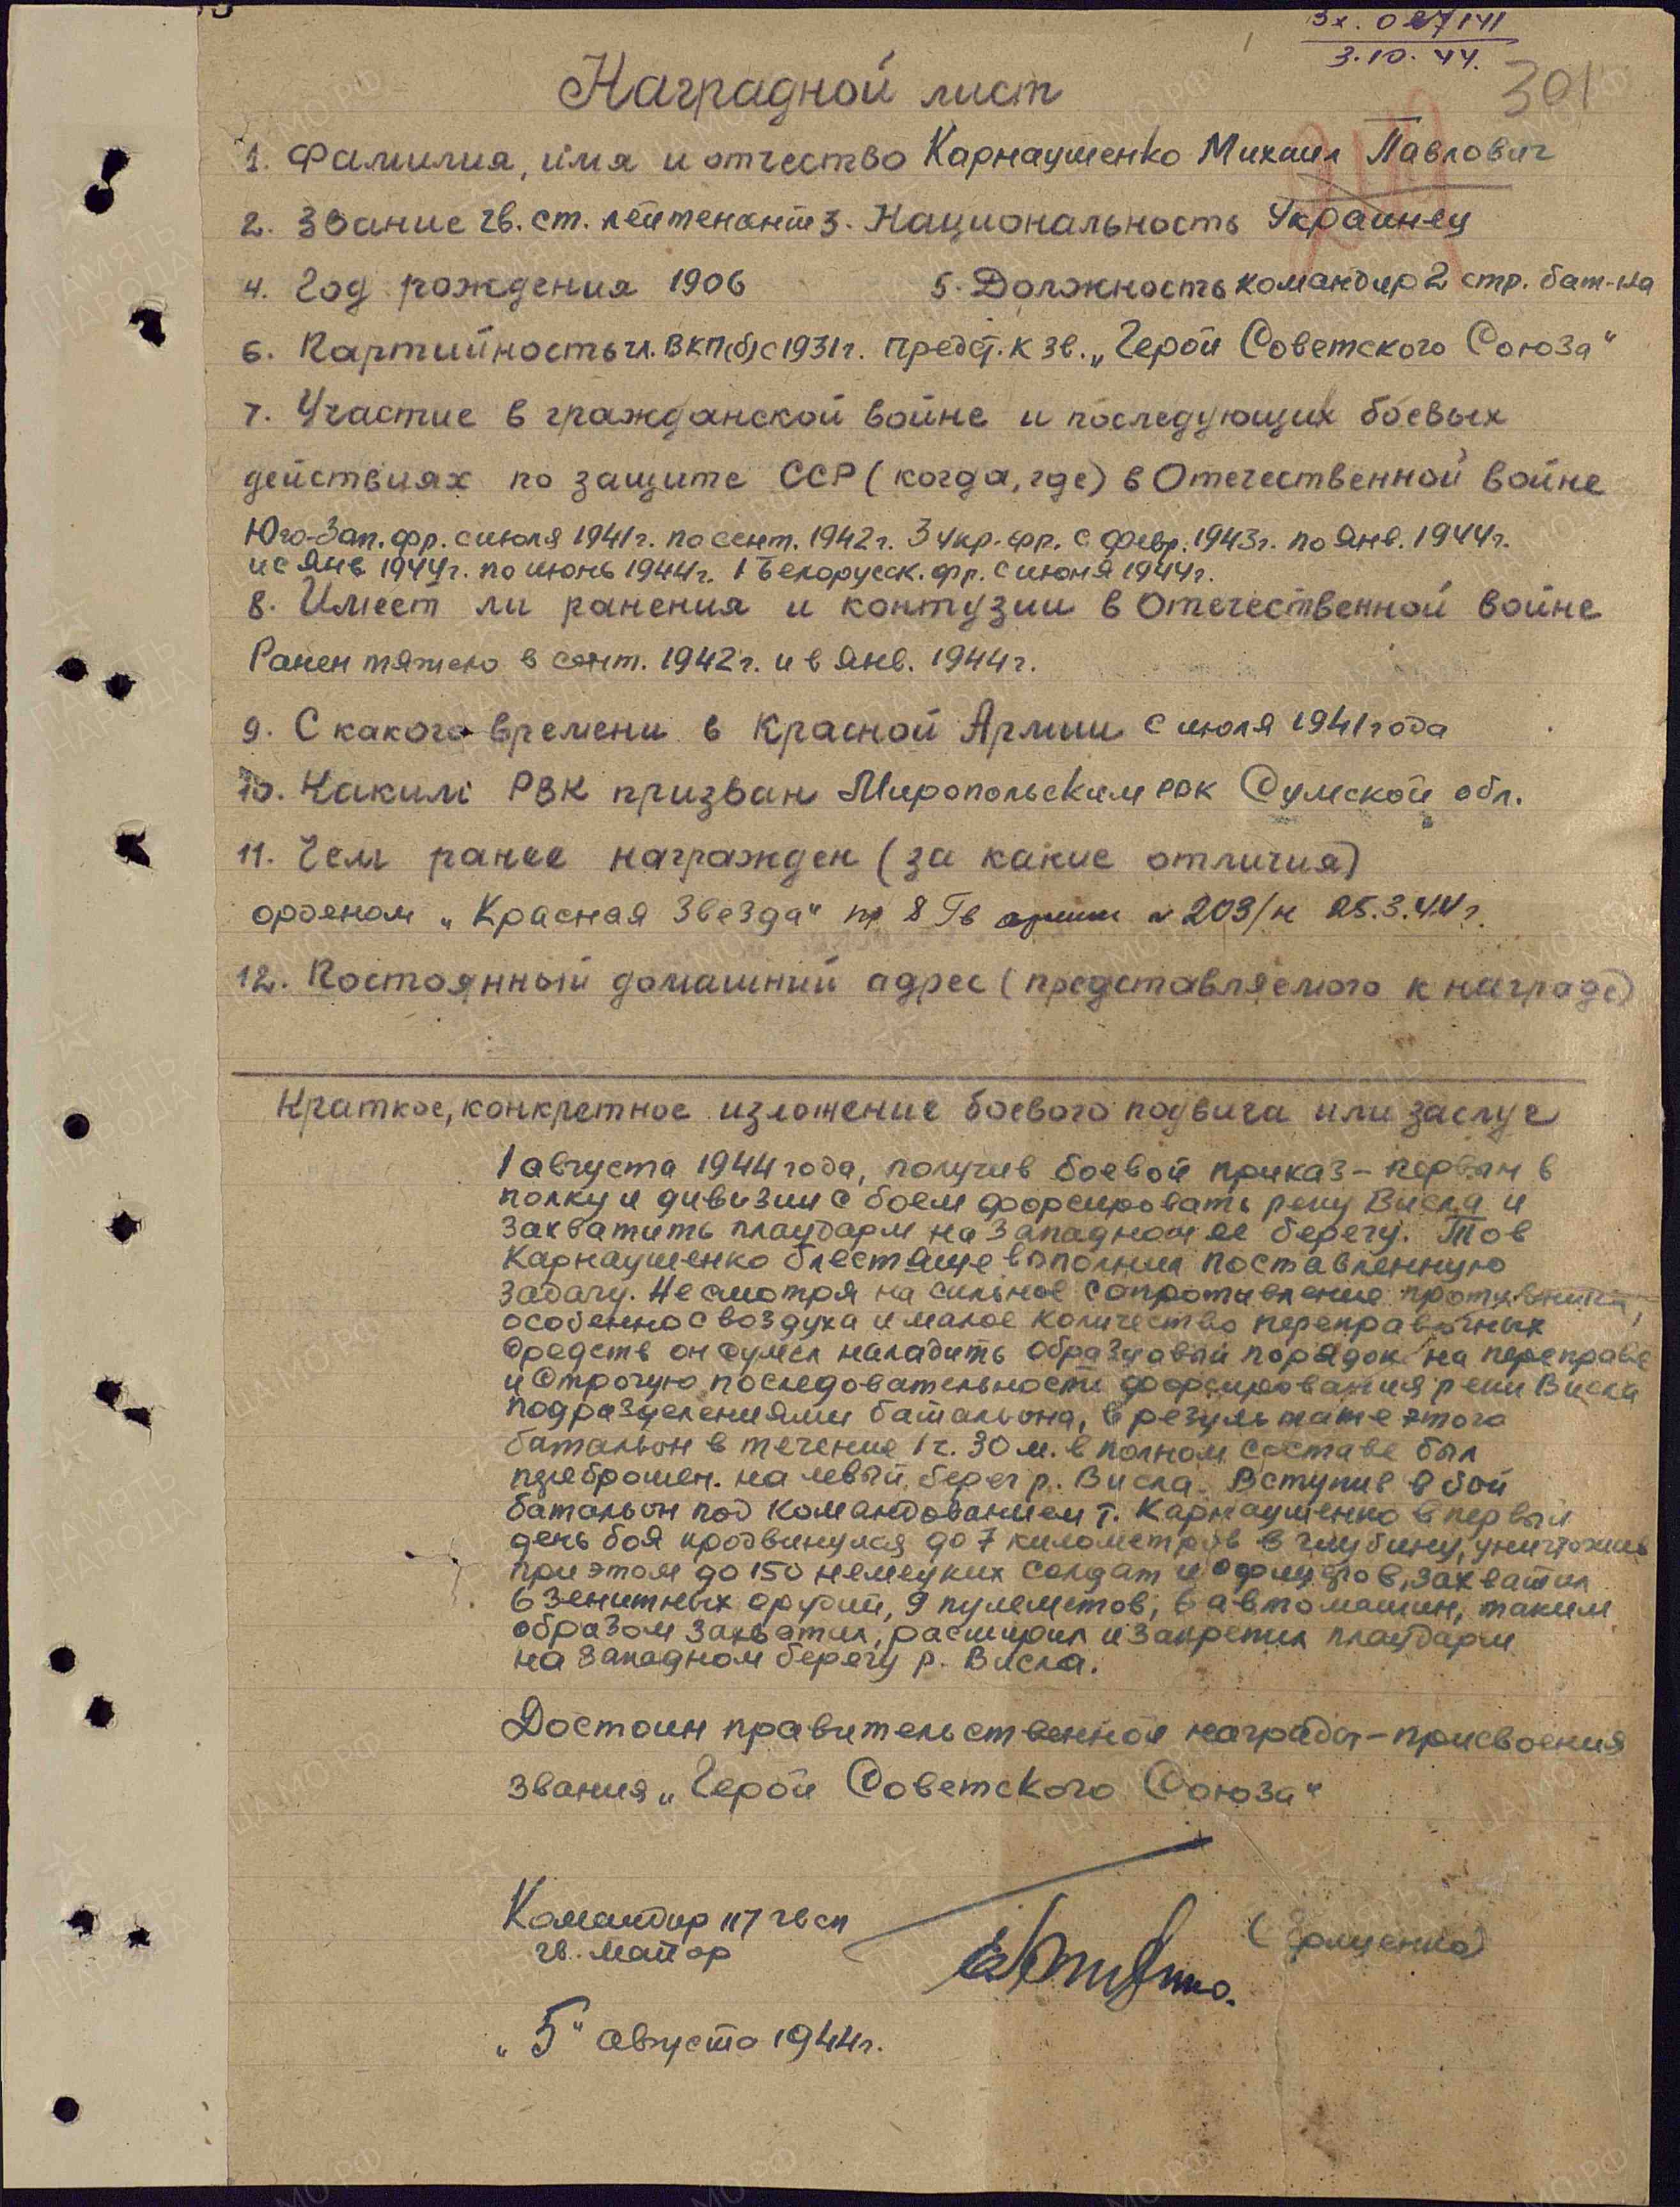 Вх. 027141
3.10.44.
301
Наградной лист
1. Фамилия, имя и отчество Карнаушенко Михаил Павлович
2. Звание гв. ст. лейтенант 3. Национальность Украинец
4. Год рождения 1906 5. Должность командир 2 стр. бат-на
6. Партийность чл. ВКП(б) с 1931 г. Предст. к зв. „Герой Советского Союза"
7. Участие в гражданской войне и последующих боевых
действиях по защите ССР (когда, где) в Отечественной войне
Юго-Зап. фр. с июля 1941 г. по сент. 1942 г. 3 Укр. фр. с февр. 1943 г. по Янв. 1944 г.
и с Янв 1944 г. по июнь 1944 г. 1 Белорусск. фр. с июня 1944 г.
8. Имеет ли ранения и контузии в Отечественной войне
Ранен тяжело в сент. 1942 г. и в Янв. 1944 г.
9. С какого времени в Красной Армии с июля 1941 года
10. Каким РВК призван Миропольским РВК Сумской обл.
11. Чем ранее награжден (за какие отличия)
орденом „Красная Звезда" пр 8 Гв армии № 203/н 25.3.44 г.
12. Постоянный домашний адрес (представляемого к награде)
Краткое, конкретное изложение боевого подвига или заслуг
1 августа 1944 года, получив боевой приказ – первым в
полку и дивизии с боем форсировать реку Висла и
захватить плацдарм на Западном ее берегу. Тов
Карнаушенко блестяще выполнил поставленную
задачу. Несмотря на сильное сопротивление противника,
особенно с воздуха и малое количество переправочных
средств он сумел наладить образцовый порядок на переправе
и строгую последовательность форсирования реки Висла
подразделениями батальона, в результате этого
батальон в течение 1 ч. 30 м. в полном составе был
переброшен. на левый берег р. Висла. Вступив в бой
батальон под командованием т. Карнаушенко в первый
день боя продвинулся до 7 километров в глубину, уничтожив
при этом до 150 немецких солдат и офицеров, захватил
6 зенитных орудий, 9 пулеметов, 6 автомашин, таким
образом захватил, расширил и закрепил плацдарм
на Западном берегу р. Висла.
Достоин правительственной награды – присвоения
звания „Герой Советского Союза"
Командир 117 гв сп
гв. майор
„5" августа 1944 г.